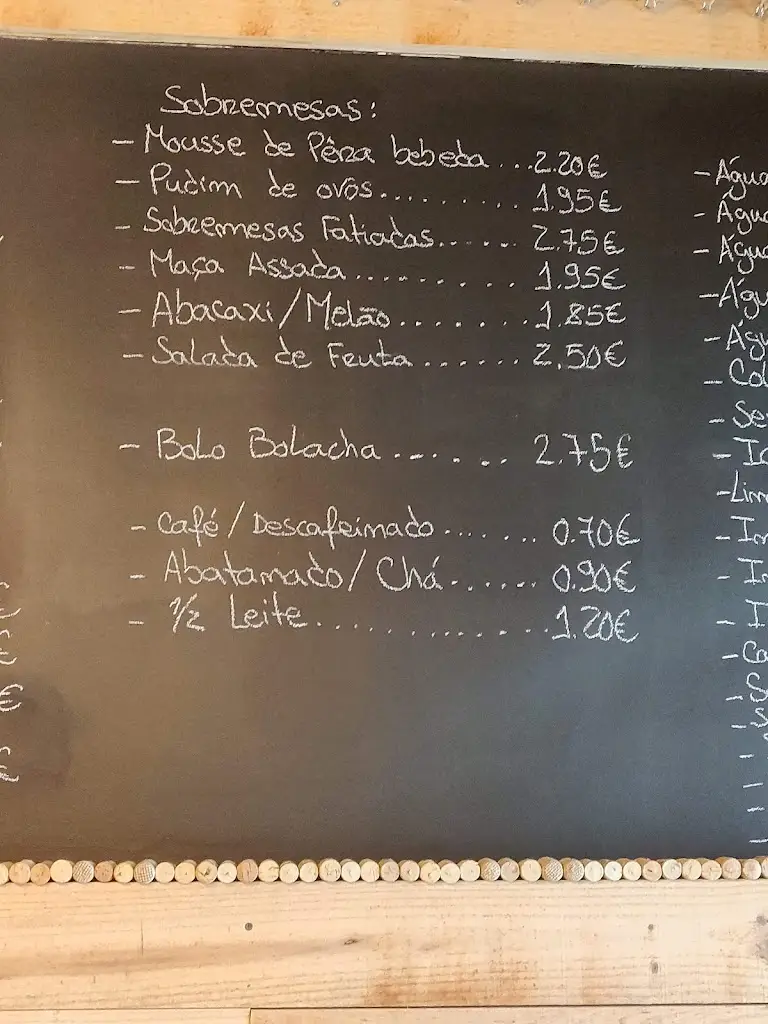 Sobremesas:
- Mousse de Pêra bebeda ...2.20€
- Pudim de ovos.......... 1.95€
- Sobremesas Fatiadas...... 2.75€
- Maça Assada........... 1.95€
- Abacaxi/Melão........ 1.85€
- Salada de Fruta........ 2.50€
- Bolo Bolacha........ 2.75€
- Café/Descafeinado....... 0.70€
- Abatanado/Chá...... 0.90€
- 1/2 Leite.............. 1.20€
- Água
- Água
- Água